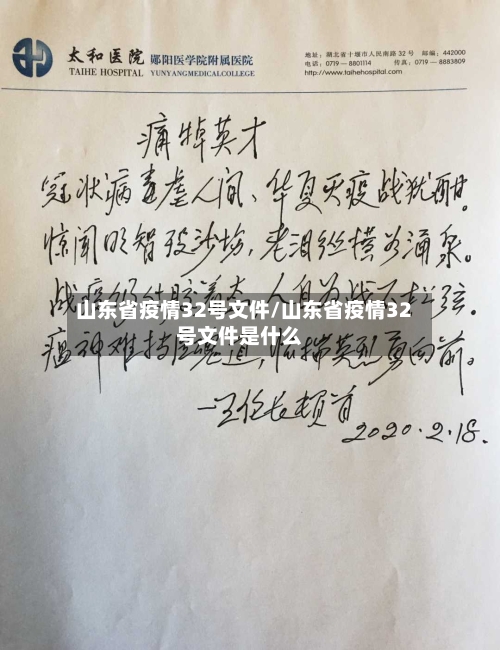 太和医院 郧阳医学院附属医院
TAIHE HOSPITAL YUNYANGMEDICALCOLLEGE
地址：湖北省十堰市人民南路 32 号 邮编：442000
电话：0719 — 8801114 传真：0719 — 8883809
http://www.taihehospital.com
痛悼英才
冠状病毒虐人间、华夏灭疫战犹酣。
惊闻明智殁沙场，老泪纵横如涌泉。
战疫
山东省疫情32号文件/山东省疫情32
号文件是什么
瘟神难挡 道，临摧英烈勇向前。
一 任长顿首
2020.2.18.